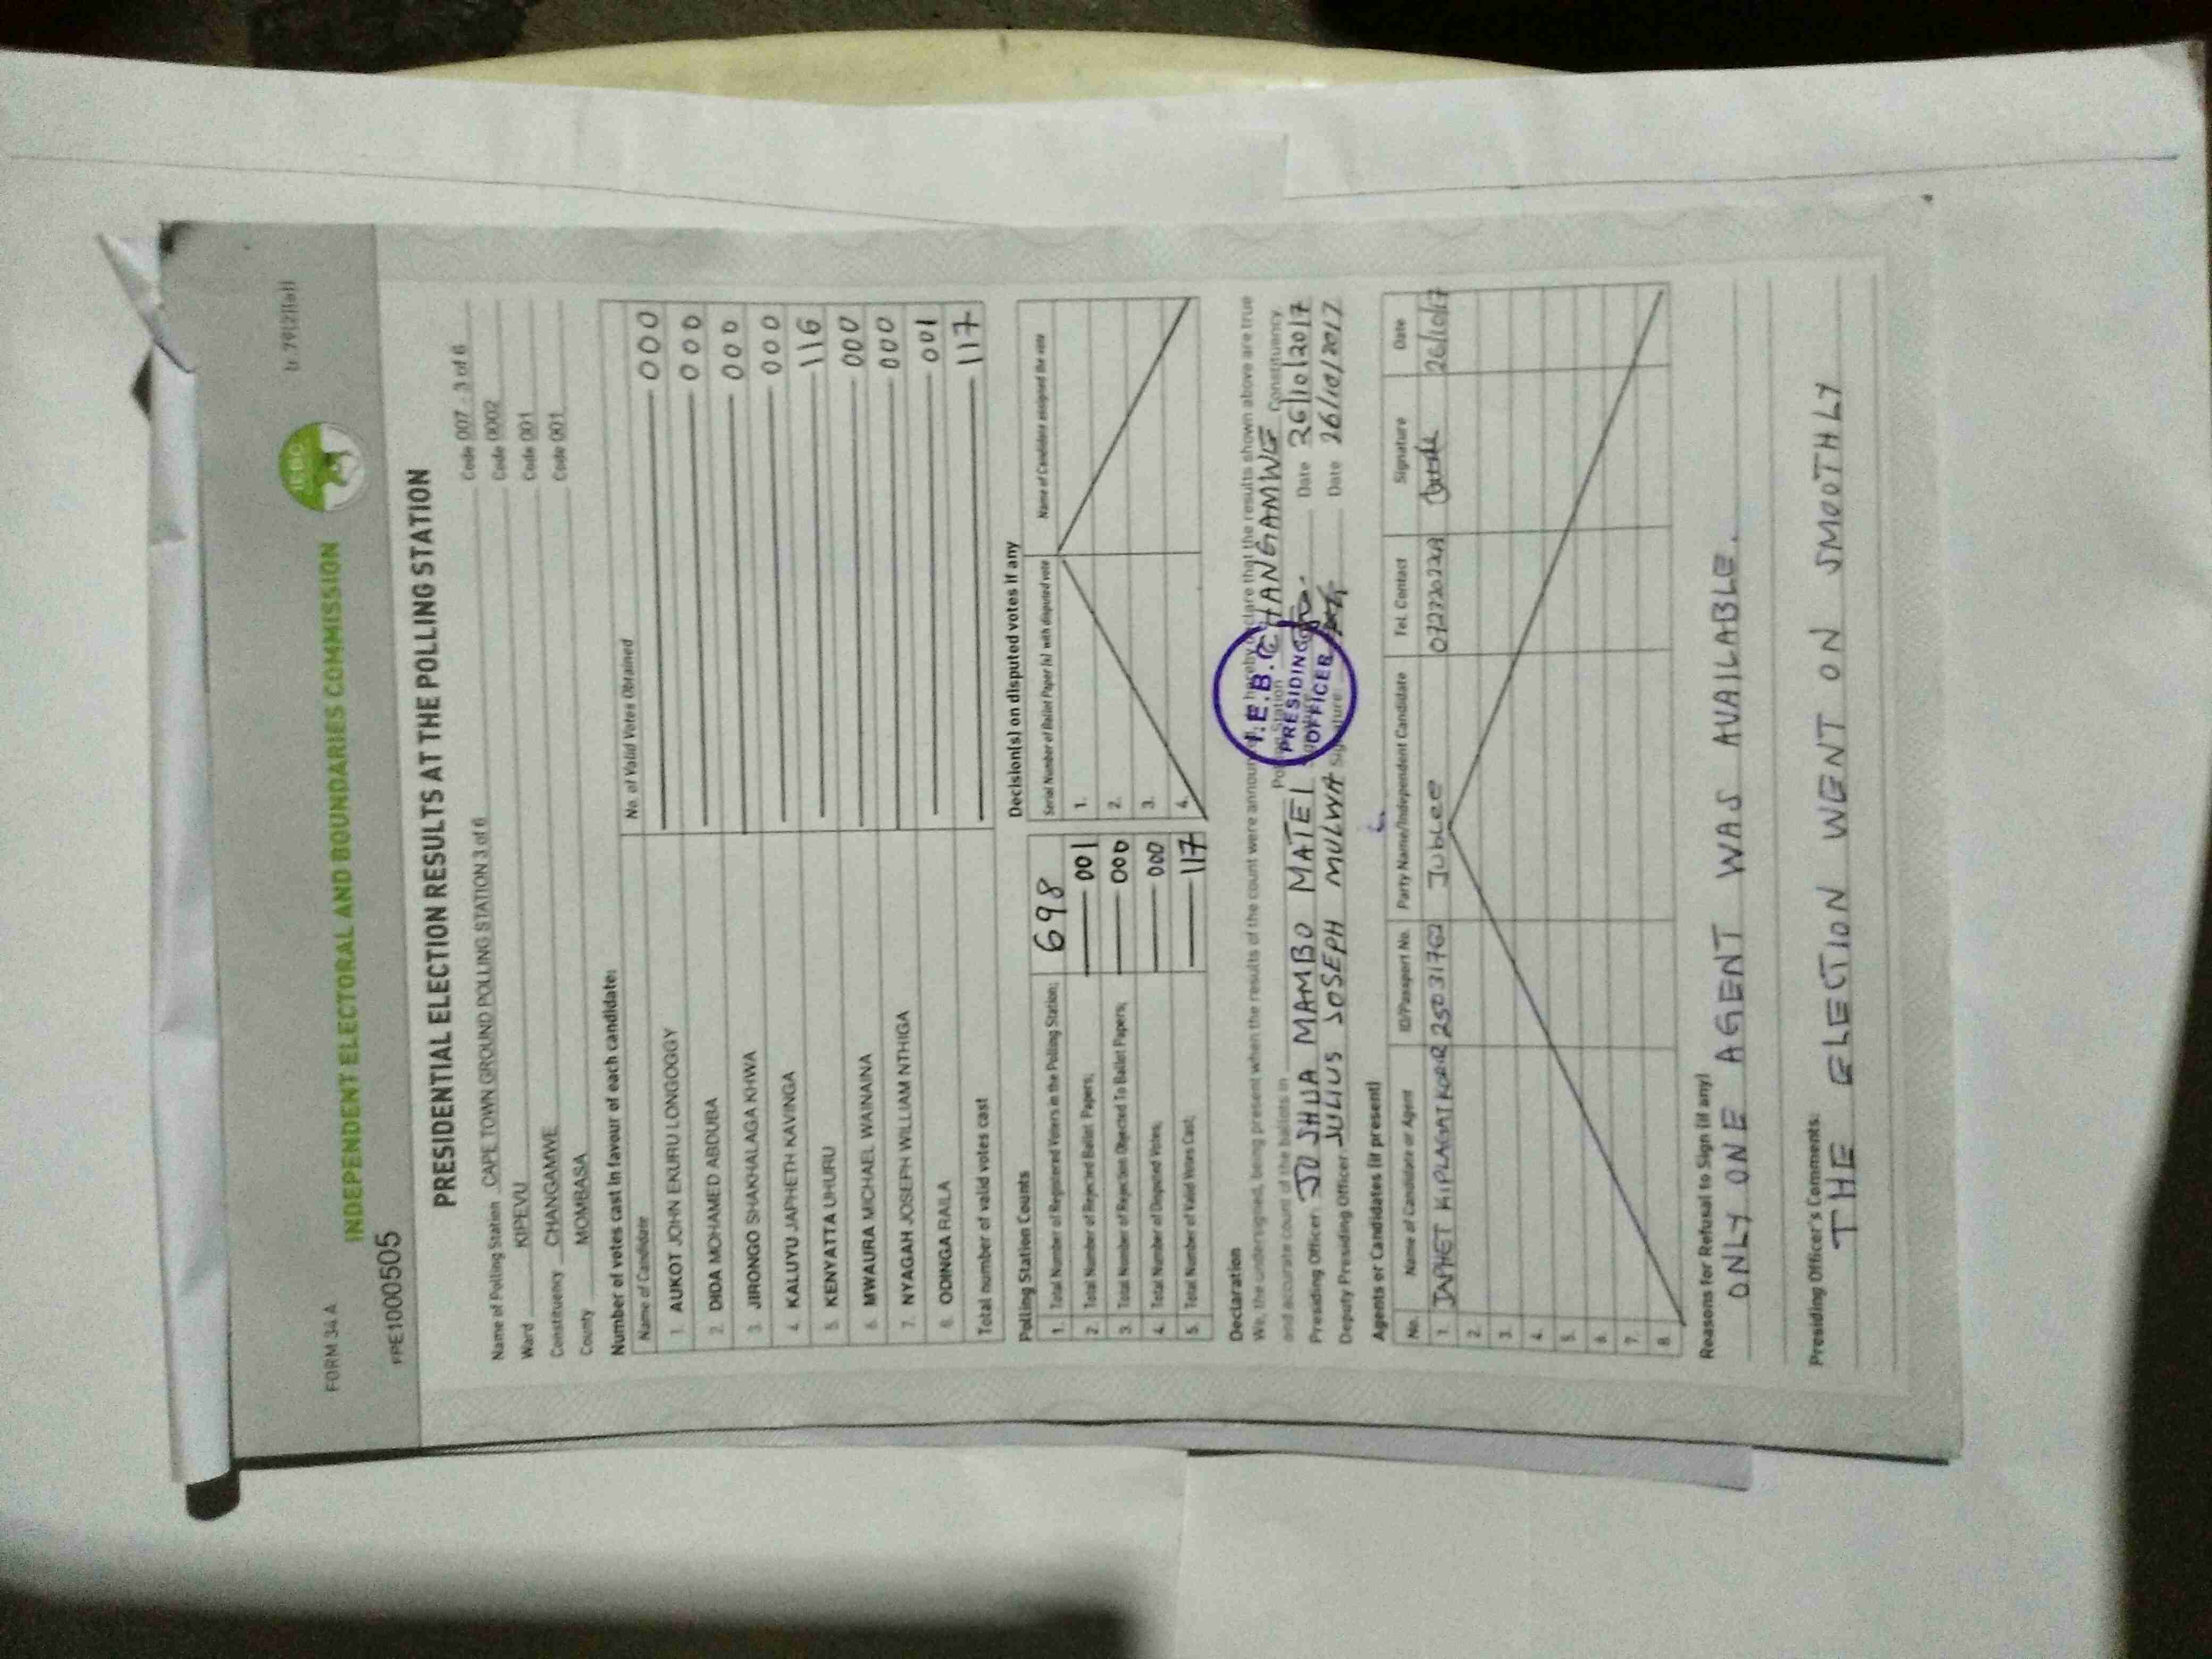 FORM 34 A
(r. 79(2)(a))
INDEPENDENT ELECTORAL AND BOUNDARIES COMMISSION
IEBC
FPE10000505
PRESIDENTIAL ELECTION RESULTS AT THE POLLING STATION
Name of Polling Station CAPE TOWN GROUND POLLING STATION 3 of 6 Code 007 - 3 of 6
Ward KIPEVU Code 0002
Constituency CHANGAMWE Code 001
County MOMBASA Code 001
Number of votes cast in favour of each candidate:
Name of Candidate No. of Valid Votes Obtained
1. AUKOT JOHN EKURU LONGOGGY 000
2. DIDA MOHAMED ABDUBA 000
3. JIRONGO SHAKHALAGA KHWA 000
4. KALUYU JAPHETH KAVINGA 000
5. KENYATTA UHURU 116
6. MWAURA MICHAEL WAINAINA 000
7. NYAGAH JOSEPH WILLIAM NTHIGA 000
8. ODINGA RAILA 001
Total number of valid votes cast 117
Polling Station Counts
1. Total Number of Registered Voters in the Polling Station; 698
2. Total Number of Rejected Ballot Papers; 001
3. Total Number of Rejection Objected To Ballot Papers; 000
4. Total Number of Disputed Votes; 000
5. Total Number of Valid Votes Cast; 117
Decision(s) on disputed votes if any
Serial Number of Ballot Paper (s) with disputed vote Name of Candidate assigned the vote
1.
2.
3.
4.
Declaration
We, the undersigned, being present when the results of the count were announced, hereby declare that the results shown above are true
and accurate count of the ballots in Polling Station CHANGAMWE Constituency.
Presiding Officer: JOSHUA MAMBO MATEI Date 26/10/2017
Deputy Presiding Officer JULIUS JOSEPH MULWA Signature: Date 26/10/2017
I.E.B.C
PRESIDING
OFFICER
Agents or Candidates (if present)
No. Name of Candidate or Agent ID/Passport No. Party Name/Independent Candidate Tel. Contact Signature Date
1. JAPHET KIPLAGAT 25031762 Jubilee 26/10/17
2.
3.
4.
5.
6.
7.
8.
Reasons for Refusal to Sign (if any)
ONLY ONE AGENT WAS AVAILABLE.
Presiding Officer's Comments:
THE ELECTION WENT ON SMOOTHLY